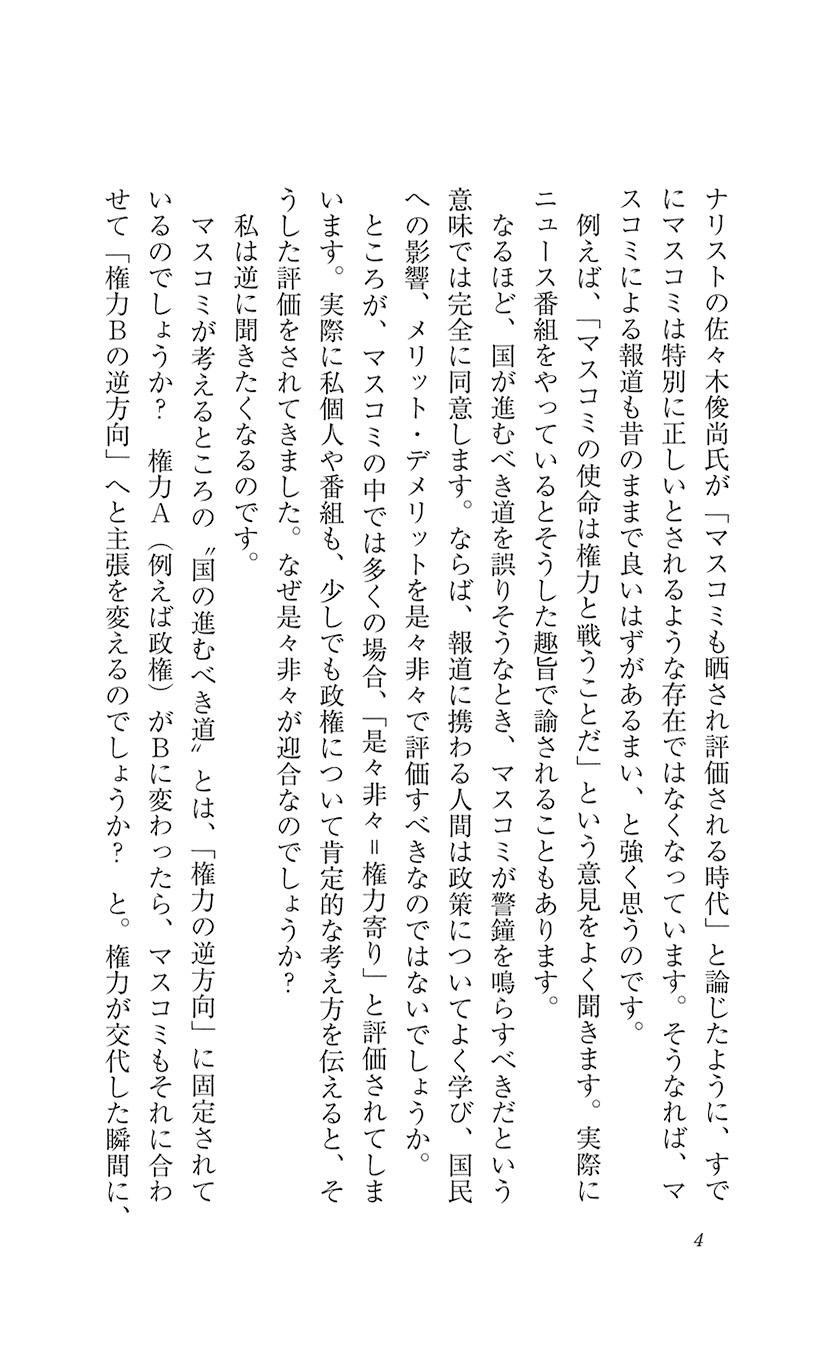 ナリストの佐々木俊尚氏が「マスコミも晒され評価される時代」と論じたように、すで
にマスコミは特別に正しいとされるような存在ではなくなっています。そうなれば、マ
スコミによる報道も昔のままで良いはずがあるまい、と強く思うのです。
例えば、「マスコミの使命は権力と戦うことだ」という意見をよく聞きます。実際に
ニュース番組をやっているとそうした趣旨で諭されることもあります。
なるほど、国が進むべき道を誤りそうなとき、マスコミが警鐘を鳴らすべきだという
意味では完全に同意します。ならば、報道に携わる人間は政策についてよく学び、国民
への影響、メリット・デメリットを是々非々で評価すべきなのではないでしょうか。
ところが、マスコミの中では多くの場合、「是々非々=権力寄り」と評価されてしま
います。実際に私個人や番組も、少しでも政権について肯定的な考え方を伝えると、そ
うした評価をされてきました。なぜ是々非々が迎合なのでしょうか?
私は逆に聞きたくなるのです。
マスコミが考えるところの〝国の進むべき道〟とは、「権力の逆方向」に固定されて
いるのでしょうか? 権力A(例えば政権)がBに変わったら、マスコミもそれに合わ
せて「権力Bの逆方向」へと主張を変えるのでしょうか? と。権力が交代した瞬間に、
4